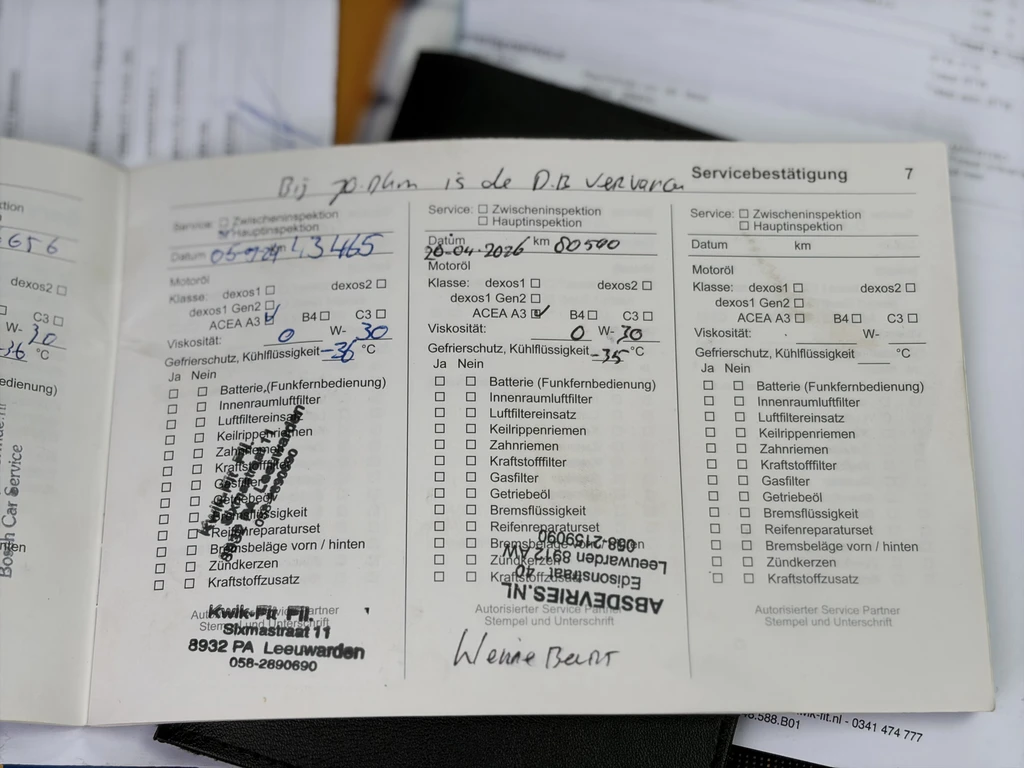 Bij 70.0km is de D.B vervaren
Servicebestätigung 7
656
dexos2 ☐
C3 ☐
W- 30
-36 °C
Bosch Car Service
Service: ☐ Zwischeninspektion
Hauptinspektion
Datum km 43465
Motoröl
Klasse: dexos1 ☐ dexos2 ☐
dexos1 Gen2 ☐
ACEA A3 ☑ B4 ☐ C3 ☐
Viskosität: 0 W- 30
Gefrierschutz, Kühlflüssigkeit -36 °C
Ja Nein
☐ ☐ Batterie,(Funkfernbedienung)
☐ ☐ Innenraumluftfilter
☐ ☐ Luftfiltereinsatz
☐ ☐ Keilrippenriemen
☐ ☐ Zahnriemen
☐ ☐ Kraftstofffilter
☐ ☐ Gasfilter
☐ ☐ Getriebeöl
☐ ☐ Bremsflüssigkeit
☐ ☐ Reifenreparaturset
☐ ☐ Bremsbeläge vorn / hinten
☐ ☐ Zündkerzen
☐ ☐ Kraftstoffzusatz
Kwik-Fit Fil.
Sixmastraat 11
8932 PA Leeuwarden
058-2890690
Autorisierter Service Partner
Stempel und Unterschrift
Kwik-Fit Fil.
Sixmastraat 11
8932 PA Leeuwarden
058-2890690
Service: ☐ Zwischeninspektion
☐ Hauptinspektion
Datum 20-04-2026 km 80500
Motoröl
Klasse: dexos1 ☐ dexos2 ☐
dexos1 Gen2 ☐
ACEA A3 ☑ B4 ☐ C3 ☐
Viskosität: 0 W- 30
Gefrierschutz, Kühlflüssigkeit -35 °C
Ja Nein
☐ ☐ Batterie (Funkfernbedienung)
☐ ☐ Innenraumluftfilter
☐ ☐ Luftfiltereinsatz
☐ ☐ Keilrippenriemen
☐ ☐ Zahnriemen
☐ ☐ Kraftstofffilter
☐ ☐ Gasfilter
☐ ☐ Getriebeöl
☐ ☐ Bremsflüssigkeit
☐ ☐ Reifenreparaturset
☐ ☐ Bremsbeläge vorn / hinten
☐ ☐ Zündkerzen
☐ ☐ Kraftstoffzusatz
ABSDEVRIES.NL
Edisonstraat 40
Leeuwarden 8912 AW
058-2159090
Autorisierter Service Partner
Stempel und Unterschrift
Service: ☐ Zwischeninspektion
☐ Hauptinspektion
Datum km
Motoröl
Klasse: dexos1 ☐ dexos2 ☐
dexos1 Gen2 ☐
ACEA A3 ☐ B4 ☐ C3 ☐
Viskosität: W-
Gefrierschutz, Kühlflüssigkeit °C
Ja Nein
☐ ☐ Batterie (Funkfernbedienung)
☐ ☐ Innenraumluftfilter
☐ ☐ Luftfiltereinsatz
☐ ☐ Keilrippenriemen
☐ ☐ Zahnriemen
☐ ☐ Kraftstofffilter
☐ ☐ Gasfilter
☐ ☐ Getriebeöl
☐ ☐ Bremsflüssigkeit
☐ ☐ Reifenreparaturset
☐ ☐ Bremsbeläge vorn / hinten
☐ ☐ Zündkerzen
☐ ☐ Kraftstoffzusatz
Autorisierter Service Partner
Stempel und Unterschrift
wik-fit.nl - 0341 474 777
.588.B01